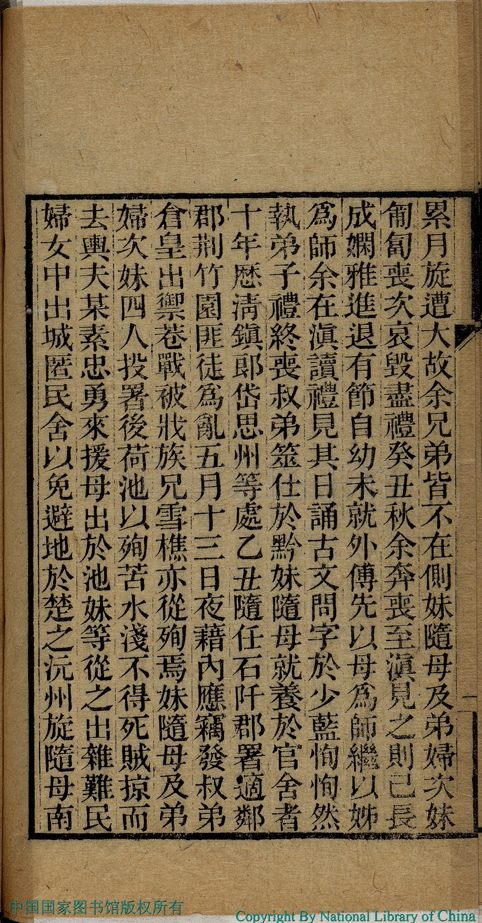 累月旋遭大故余兄弟皆不在側妹隨母及弟婦次妹
匍匐喪次哀毀盡禮癸丑秋余奔喪至滇見之則已長
成嫻雅進退有節自幼未就外傅先以母為師繼以姊
為師余在滇讀禮見其日誦古文問字於少藍恂恂然
執弟子禮終喪叔弟筮仕於黔妹隨母就養於官舍者
十年歷清鎮郎岱思州等處乙丑隨任石阡郡署適鄰
郡荆竹園匪徒為亂五月十三日夜藉內應竊發叔弟
倉皇出禦巷戰被戕族兄雪樵亦從殉焉妹隨母及弟
婦次妹四人投署後荷池以殉苦水淺不得死賊掠而
去輿夫某素忠勇來援母出於池妹等從之出雜難民
婦女中出城匿民舍以免避地於楚之沅州旋隨母南
中国国家图书馆版权所有
Copyright By National Library of China